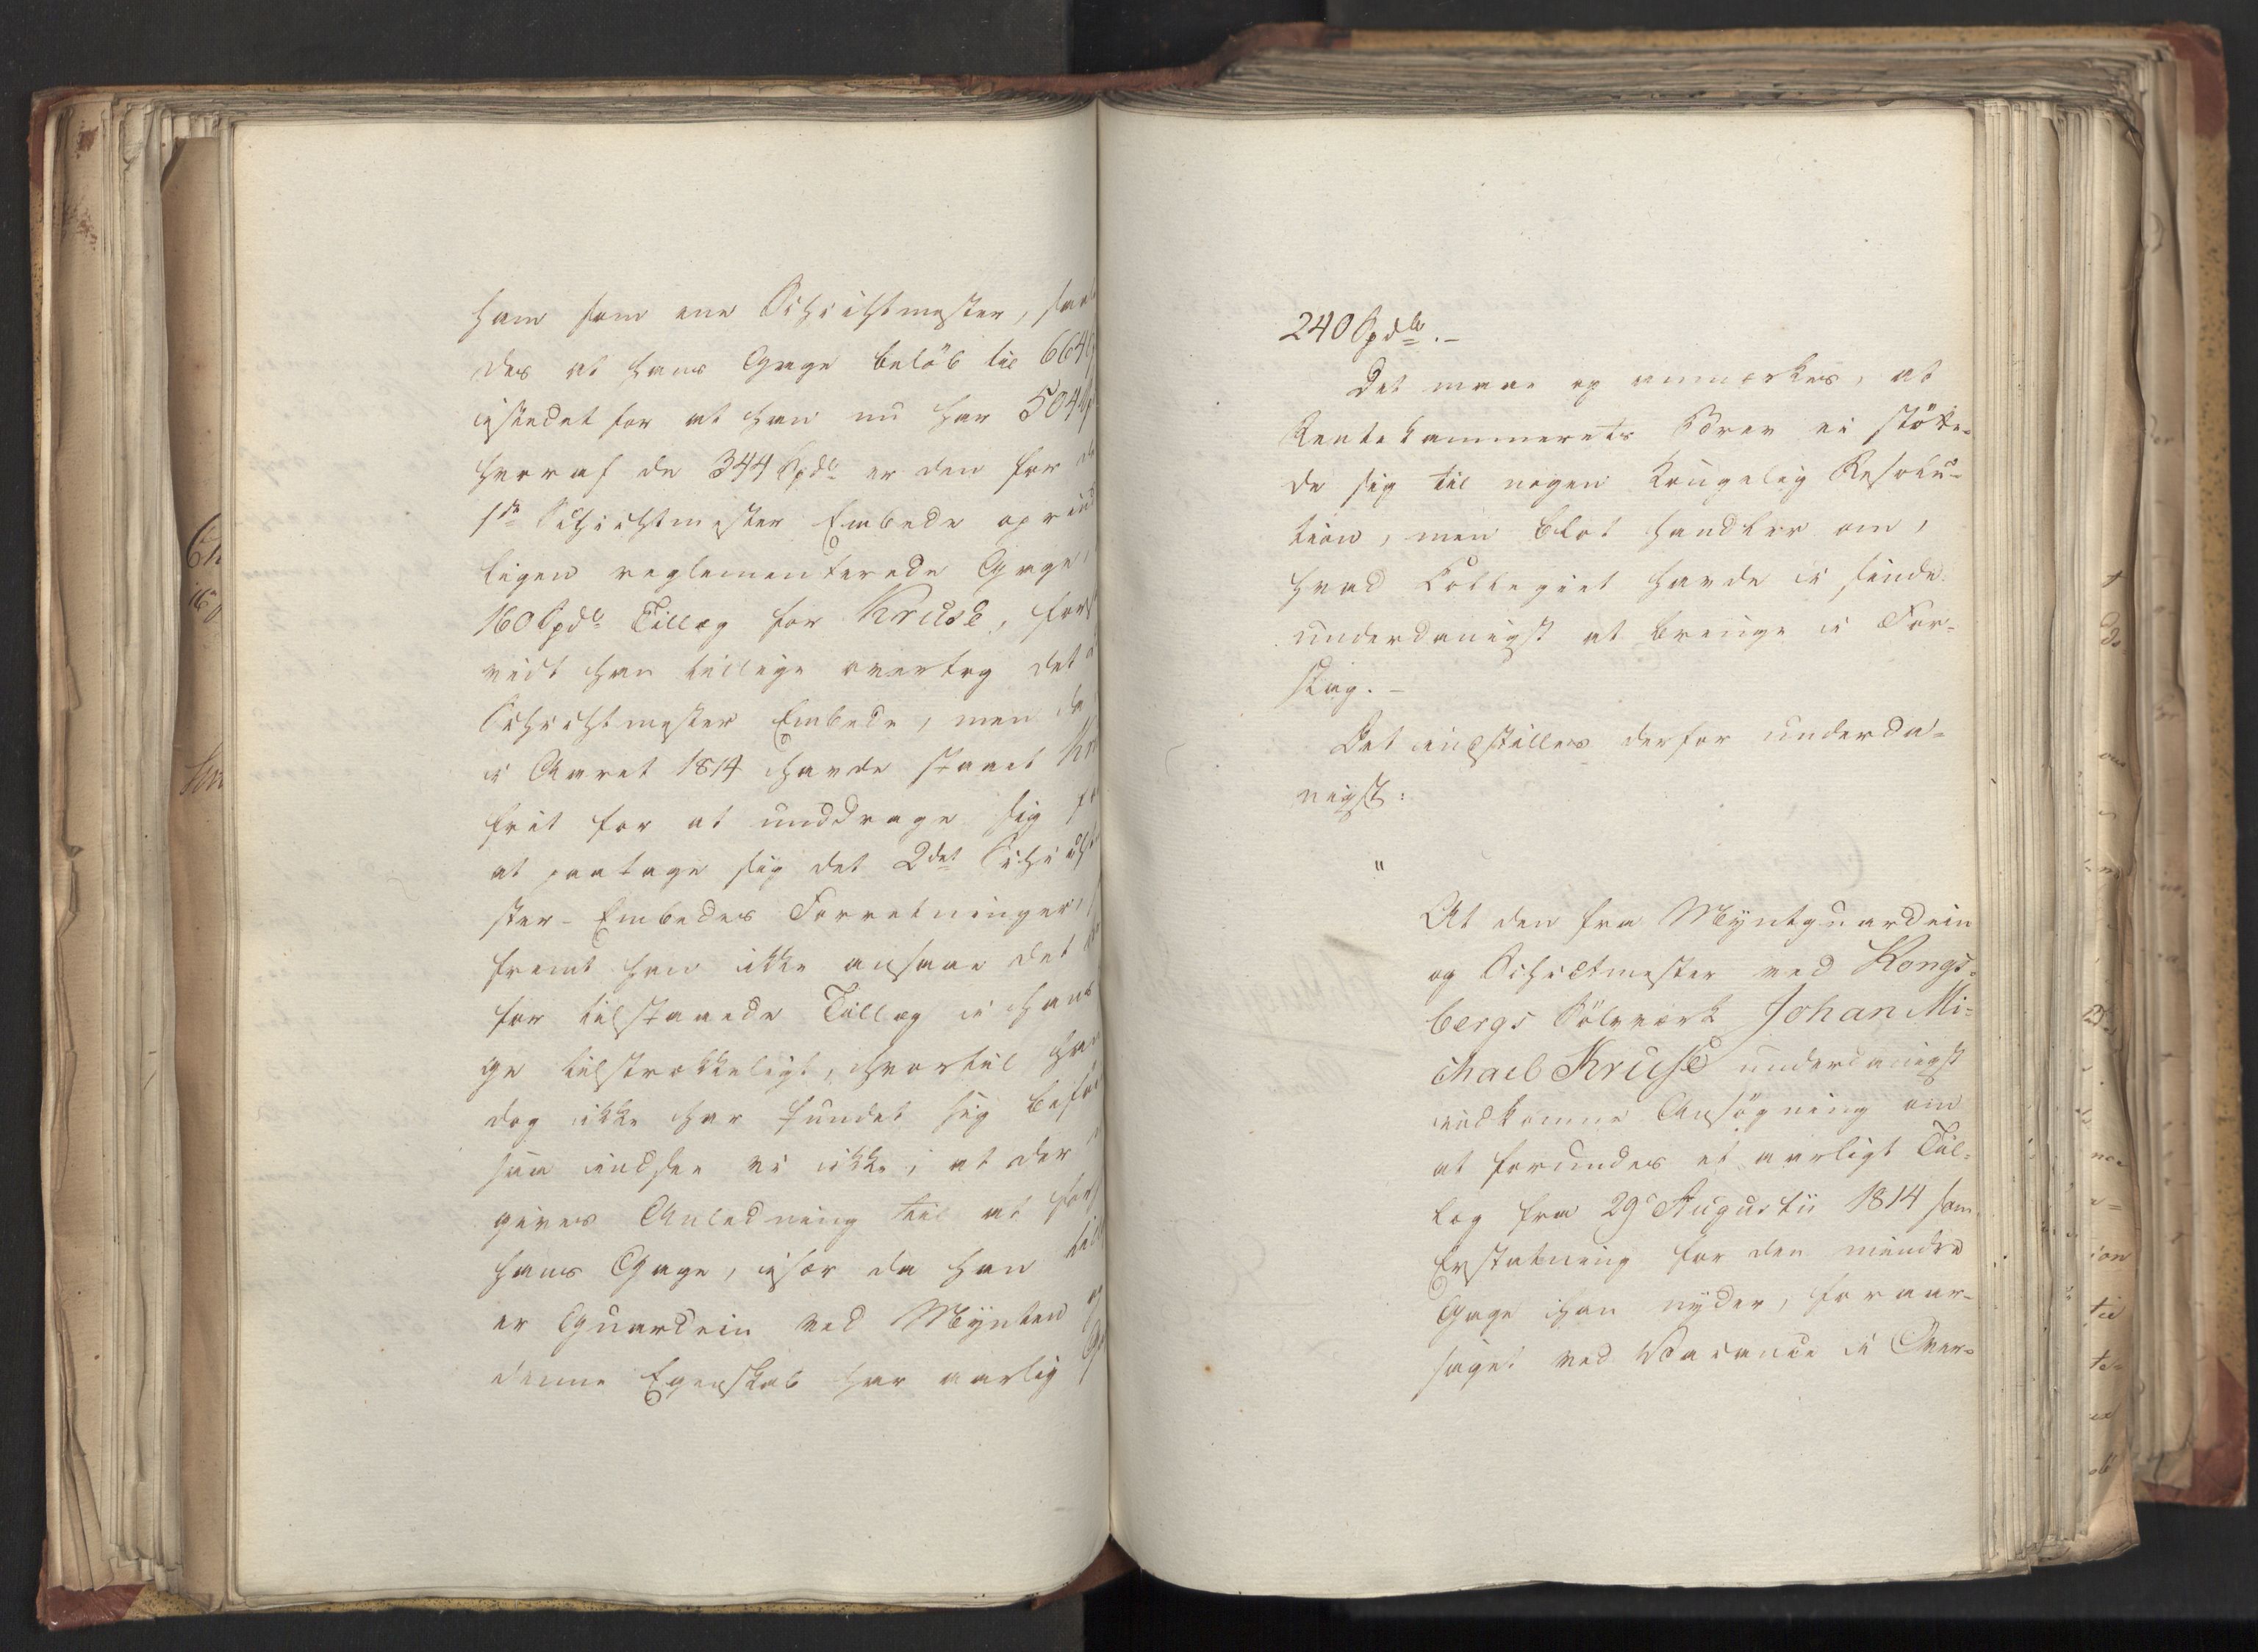 ham som ene Schichtmester, saale
des at hans Gage beløb til 664
istedet for at han nu har 504
hvoraf de 344 Spdlr er den for
1ste Schichtmester Embede oprind
ligen reglementerede Gage,
160 Spdlr Tillæg for Kruse, for
vidt han tillige overtog det
Schichtmester Embede, men da
i Aaret 1814 havde staaet Kr
frit for at unddrage sig
at paatage sig det 2det Schicht
ster-Embedes Forretninger,
fremt han ikke ansaae det
for tilstaaede Tillæg i hans
ge tilstrækkeligt, hvortil han
dog ikke har fundet sig beføi
saa indsee vi ikke, at der
gives Anledning til at for
hans Gage, især da han till
er Guardein ved Mÿnten og
denne Egenskab har aarlig
240 Spdlr.-
Det maae og anmærkes, at
Rentekammerets Brev ei støtte-
de sig til nogen Kongelig Resolu-
tion, men blot handler om,
hvad Collegiet havde i sinde
underdanigst at bringe i For-
slag.-
Det indstilles derfor underda-
nigst:
"
At den fra Mÿntguardein
og Schictmester ved Kongs-
bergs Sölvværk Johan Mi-
chael Kruse underdanigst
indkomne Ansøgning om
at forundes et aarligt Til-
læg fra 29 Augustii 1814 som
Erstatning for den mindre
Gage han nÿder, foraar-
saget ved Vacance i Over-